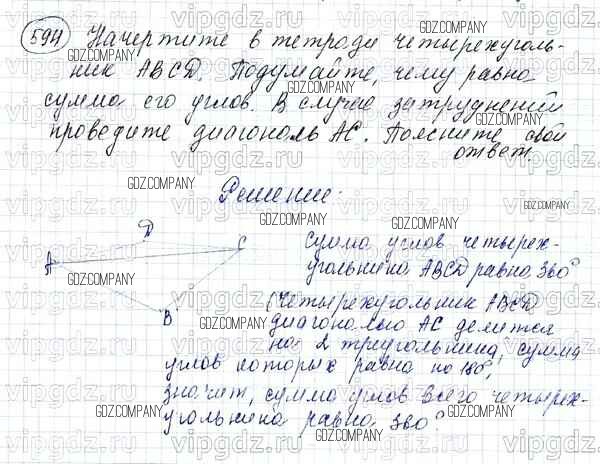 594 Начертите в тетради четырехуголь-
ник ABCD. Подумайте, чему равна
сумма его углов. В случае затруднений
проведите диагональ AC. Поясните свой
ответ.
Решение:
D
C
A
B
Сумма углов четырех-
угольника ABCD равна 360°
(Четырехугольник ABCD
диагональю AC делится
на 2 треугольника, сумма
углов которых равна по 180°,
значит, сумма углов всего четырех-
угольника равна 360°
vipgdz.ru
GDZ.COMPANY